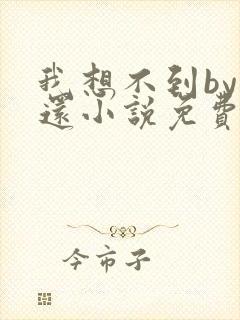 我想不到by
還小說免費
今市子